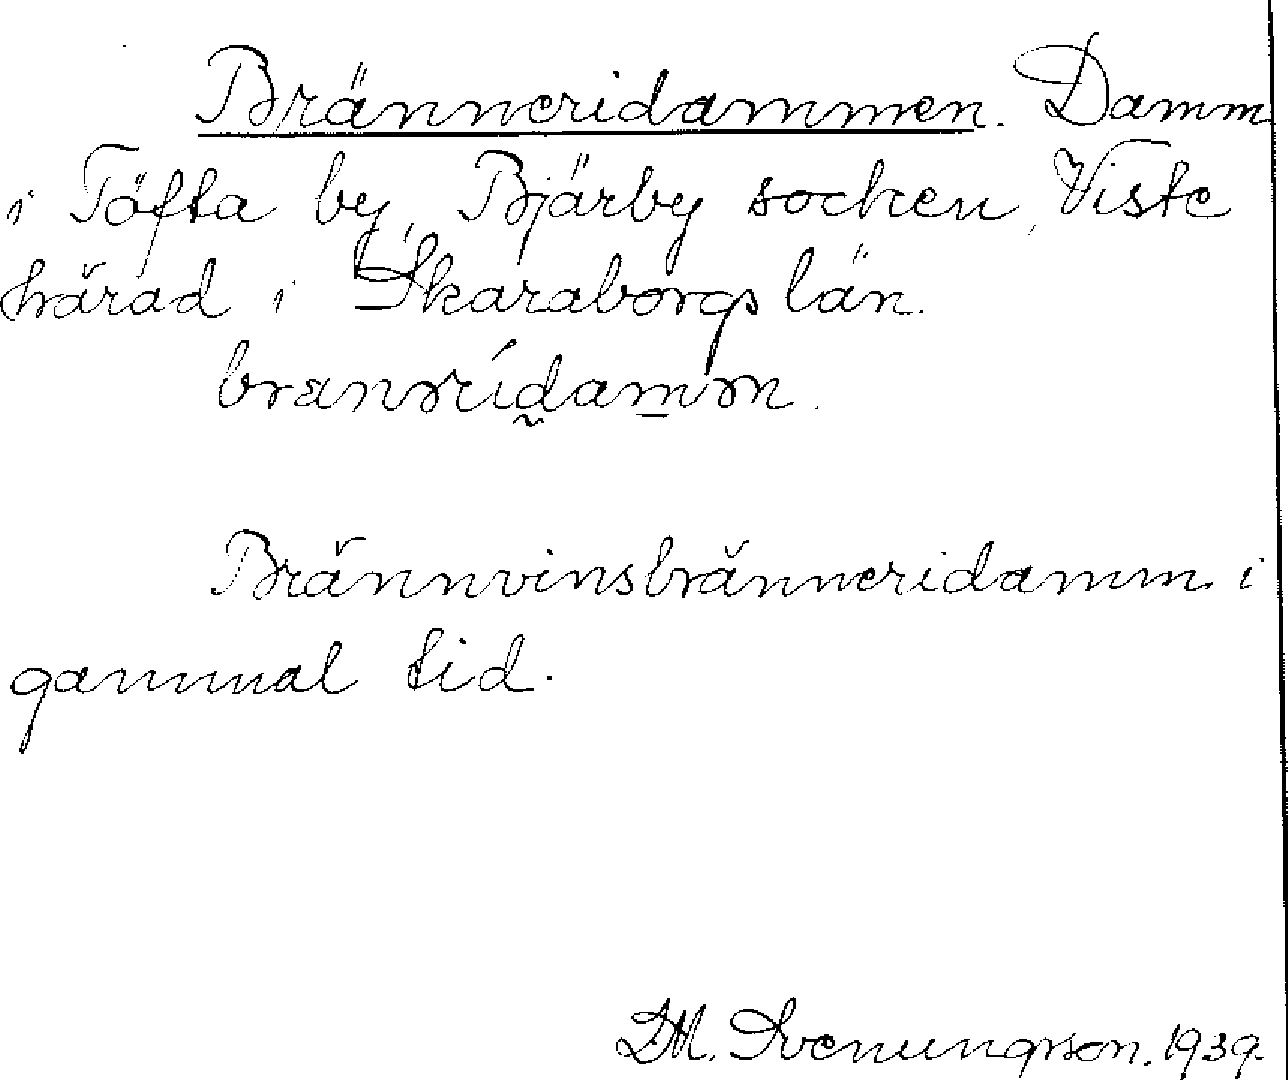 Bränneridammen. Damm
i Töfta by, Bjärby socken, Viste
härad i Skaraborgs län.
Brännvinsbränneridamm i
gammal tid.
D.M. Svenungsson. 1939.